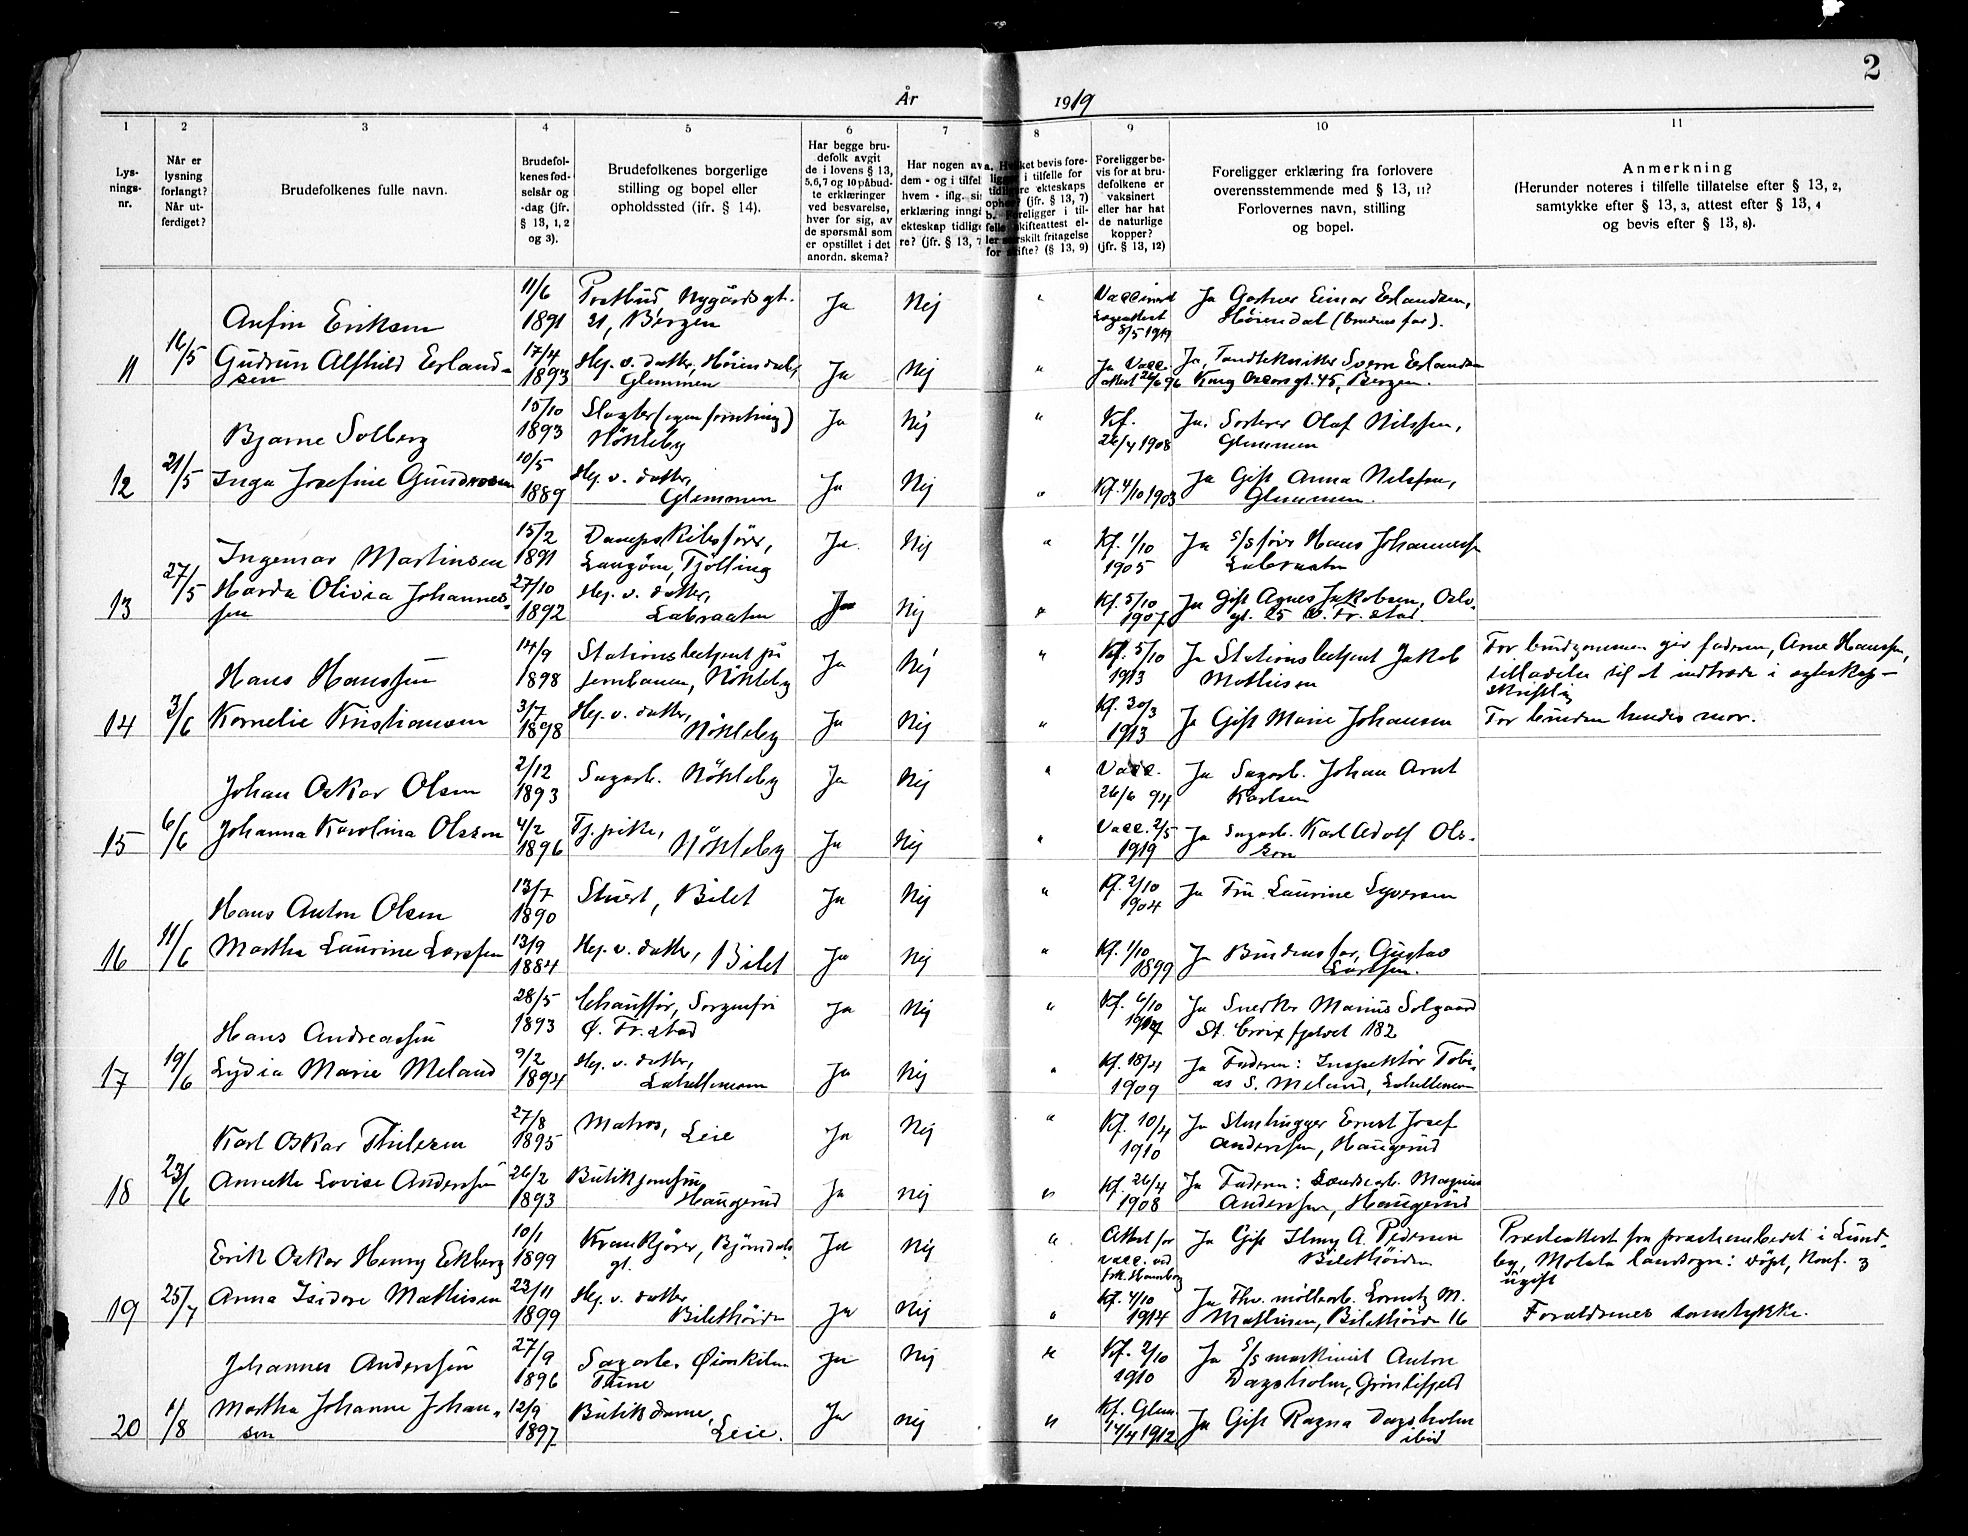 2
År 1919
1 2 3 4 5 6 7 8 9 10 11
Lys-
nings-
nr.
Når er
lysning
forlangt?
Når ut-
ferdiget?
Brudefolkenes fulle navn.
Brudefol-
kenes fød-
selsår og
-dag (jfr.
§ 13, 1, 2
og 3).
Brudefolkenes borgerlige
stilling og bopel eller
opholdssted (ifr. § 14).
Har begge bru-
defolk avgit
de i lovens § 13,
5,6,7 og 10 påbud-
te erklæringer
ved besvarelse,
hver for sig, av
de spørsmål som
er opstillet i det
anordn. skema?
Har nogen av
dem - og i tilfel
hvem - iflg. si
erklæring inngå
ekteskap tidlige
re? (jfr. § 13, 7
ket bevis fore-
i tilfelle for
ekteskaps
(jfr. § 13, 7)
b. Foreligger i til-
skifteattest el-
særskilt fritagelse
for skifte? (§ 13, 9)
Foreligger be-
vis for at bru-
defolkene er
vaksinert
eller har hat
de naturlige
kopper?
(jfr. § 13, 12)
Foreligger erklæring fra forlovere
overensstemmende med § 13, 11?
Forlovernes navn, stilling
og bopel.
Anmerkning
(Herunder noteres i tilfelle tillatelse efter § 13, 2,
samtykke efter § 13, 3, attest efter § 13, 4
og bevis efter § 13, 8).
11 16/5 Anfin Eriksen 11/6 1891 Postbud, Nygårdsgt. 21, Bergen Ja Nej " Vaccinert 8/5 1919 Ja Gartner Einar Erlandsen, Høiendal (brudens far).
Gudrun Alfhild Erland-
sen 17/4 1893 Hej. v. datter, Høiendal, Glemmen Ja Nej " Ja Vacc. attest 26/6 96 Ja, Tandtekniker Sverre Erlandsen Kong Oscarsgt. 45, Bergen.
12 21/5 Bjarne Solberg 15/10 1893 Slagter (egen forretning) Nökleby Ja Nej " Kf. 26/4 1908 Ja. Sorterer Olaf Nilssen, Glemmen
Inga Josefine Gundersen 10/5 1889 Hej. v. datter, Glemmen Ja Nej " Kf. 4/10 1903 Ja Gift Anna Nilssen, Glemmen.
13 27/5 Ingemar Martinsen 15/2 1891 Dampskibsfører, Tjölling Ja Nej " Kf. 1/10 1905 Ja s/s fører Hans Johannessen Labraaten
Harda Olivia Johannes-
sen 27/10 1892 Hej. v. datter, Labraaten Ja Nej " Kf. 5/10 1907 Ja Gift Agnes Jakobsen, Oslo-
gt. 25 Fr.stad.
14 3/6 Hans Hanssen 14/9 1898 Stationsbetjent på jernbanen, Nökleby Ja Nej " Kf. 5/10 1913 Ja Stationsbetjent Jakob Mathisen For brudgommen gir faderen, Arne Hanssen, tilladelse til at indtræde i egteskap - skriftlig
Kornelie Kristiansen 3/7 1898 Hej. v. datter, Nökleby Ja Nej " Kf. 30/3 1913 Ja Gift Marie Johansen For bruden hendes mor.
15 6/6 Johan Oskar Olsen 2/12 1893 Sagarb. Nökleby Ja Nej " Vacc. 26/6 94 Ja Sagarb. Johan Arnt Karlsen
Johanna Karolina Olsson 4/2 1896 Tj.pike, Nökleby Ja Nej " Vacc. 2/5 1919 Ja Sagarb. Karl Adolf Ols-
son
16 11/6 Hans Anton Olsen 13/7 1890 Stuert, Bilet Ja Nej " Kf. 2/10 1904 Ja Fru Laurine Syversen
Martha Laurine Larssen 13/9 1884 Hej. v. datter, Bilet Ja Nej " Kf. 1/10 1899 Ja Brudens far, Gustav Larssen.
17 19/6 Hans Andreassen 28/5 1893 Chauffør, Sorgenfri Ø. Fr.stad Ja Nej " Kf. 6/10 Ja Snedker Marius Solgaard St. Croix fjeldet 182
Lydia Marie Meland 9/2 1894 Hej. v. datter, Ja Nej " Kf. 18/4 1909 Ja Faderen: Inspektør Tobi-
as S. Meland,
18 23/6 Karl Oskar Thilesen 27/8 1895 Matros, Leie Ja Nej " Kf. 10/4 1910 Ja Stenhugger Ernst Josef Anderssen, Haugerud
Annette Lovise Anderssen 26/2 1893 Butikjomfru Haugerud Ja nej " Kf. 26/4 1908 Ja Faderen: Magnus Anderssen, Haugerud
19 25/7 Erik Oskar Henry Ekberg 10/1 1899 Krankjører, Bjørndals-
gt. Ja Nej " Attest for vacc. ved Ja Gift Ilmy A. Pedersen Bilethöiden Presteattest fra prestembedet i Lund-
by, Motala landsogn: döpt, konf. og ugift
Anna Isidore Mathisen 23/11 1899 Hej. v. datter Bilethöiden Ja nej " Kf. 4/10 1914 Ja Fhv. møllearb. Lorentz M. Mathisen, Bilethöiden 16 Forældrenes samtykke.
20 1/8 Johannes Anderssen 27/9 1896 Sagarb. Tune Ja Nej " Kf. 2/10 1910 Ja S/s maskinist Anton Dagsholm, Grønlifjeld
Martha Johanne Johan-
sen 12/9 1897 Butikdame, Leie. Ja nej " Kf. Glem. 14/4 1912 Ja Gift Ragna Dagsholm ibid